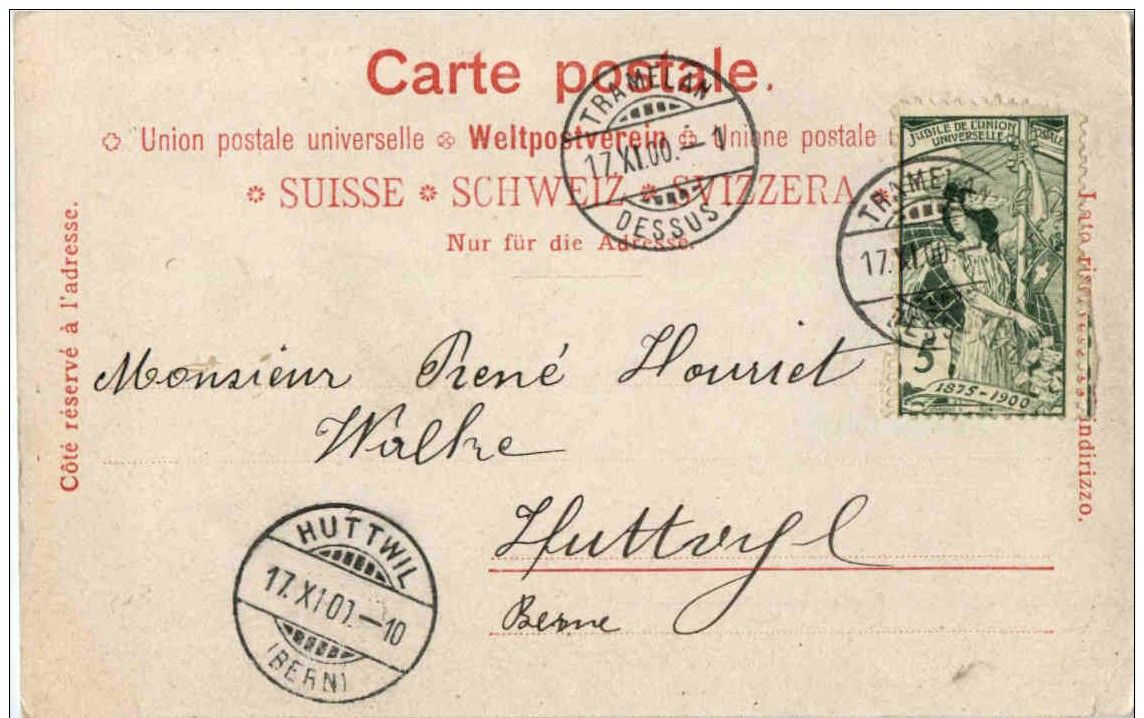 Carte postale.
Union postale universelle Weltpostverein Unione postale
SUISSE SCHWEIZ SVIZZERA
Nur für die Adresse.
Côté réservé à l'adresse.
TRAMELAN
17.XI.00.–1
DESSUS
JUBILÉ DE L'UNION POSTALE
UNIVERSELLE
TRAMELAN
17.XI.00.
DESSUS
5
1875-1900
indirizzo.
Monsieur René Houriet
Huttwyl
Berne
HUTTWIL
17.XI.00.–10
(BERN)